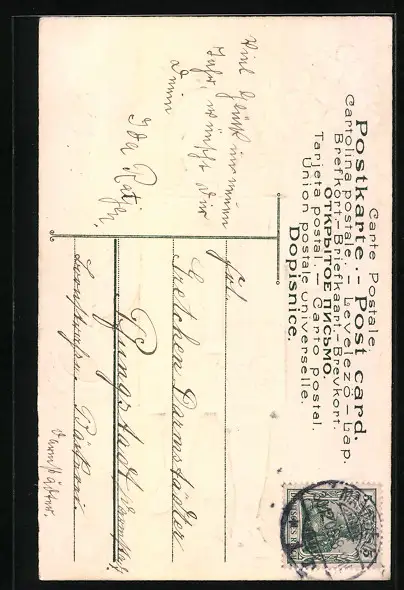 Carte Postale.
Postkarte.- Post card.
Cartolina postale.- Levelező-Lap.
Brefkort.-Briefkaart-Brevkort.
ОТКРЫТОЕ ПИСЬМО.
Tarjeta postal.- Carto postal.
Union postale universelle.
Dopisnice.
Viel Glück im neuen
Jahr, wünscht Dir
Deine
Ida
Frl.
Gretchen Darmstädter
Pfungstadt
Darmstädter.